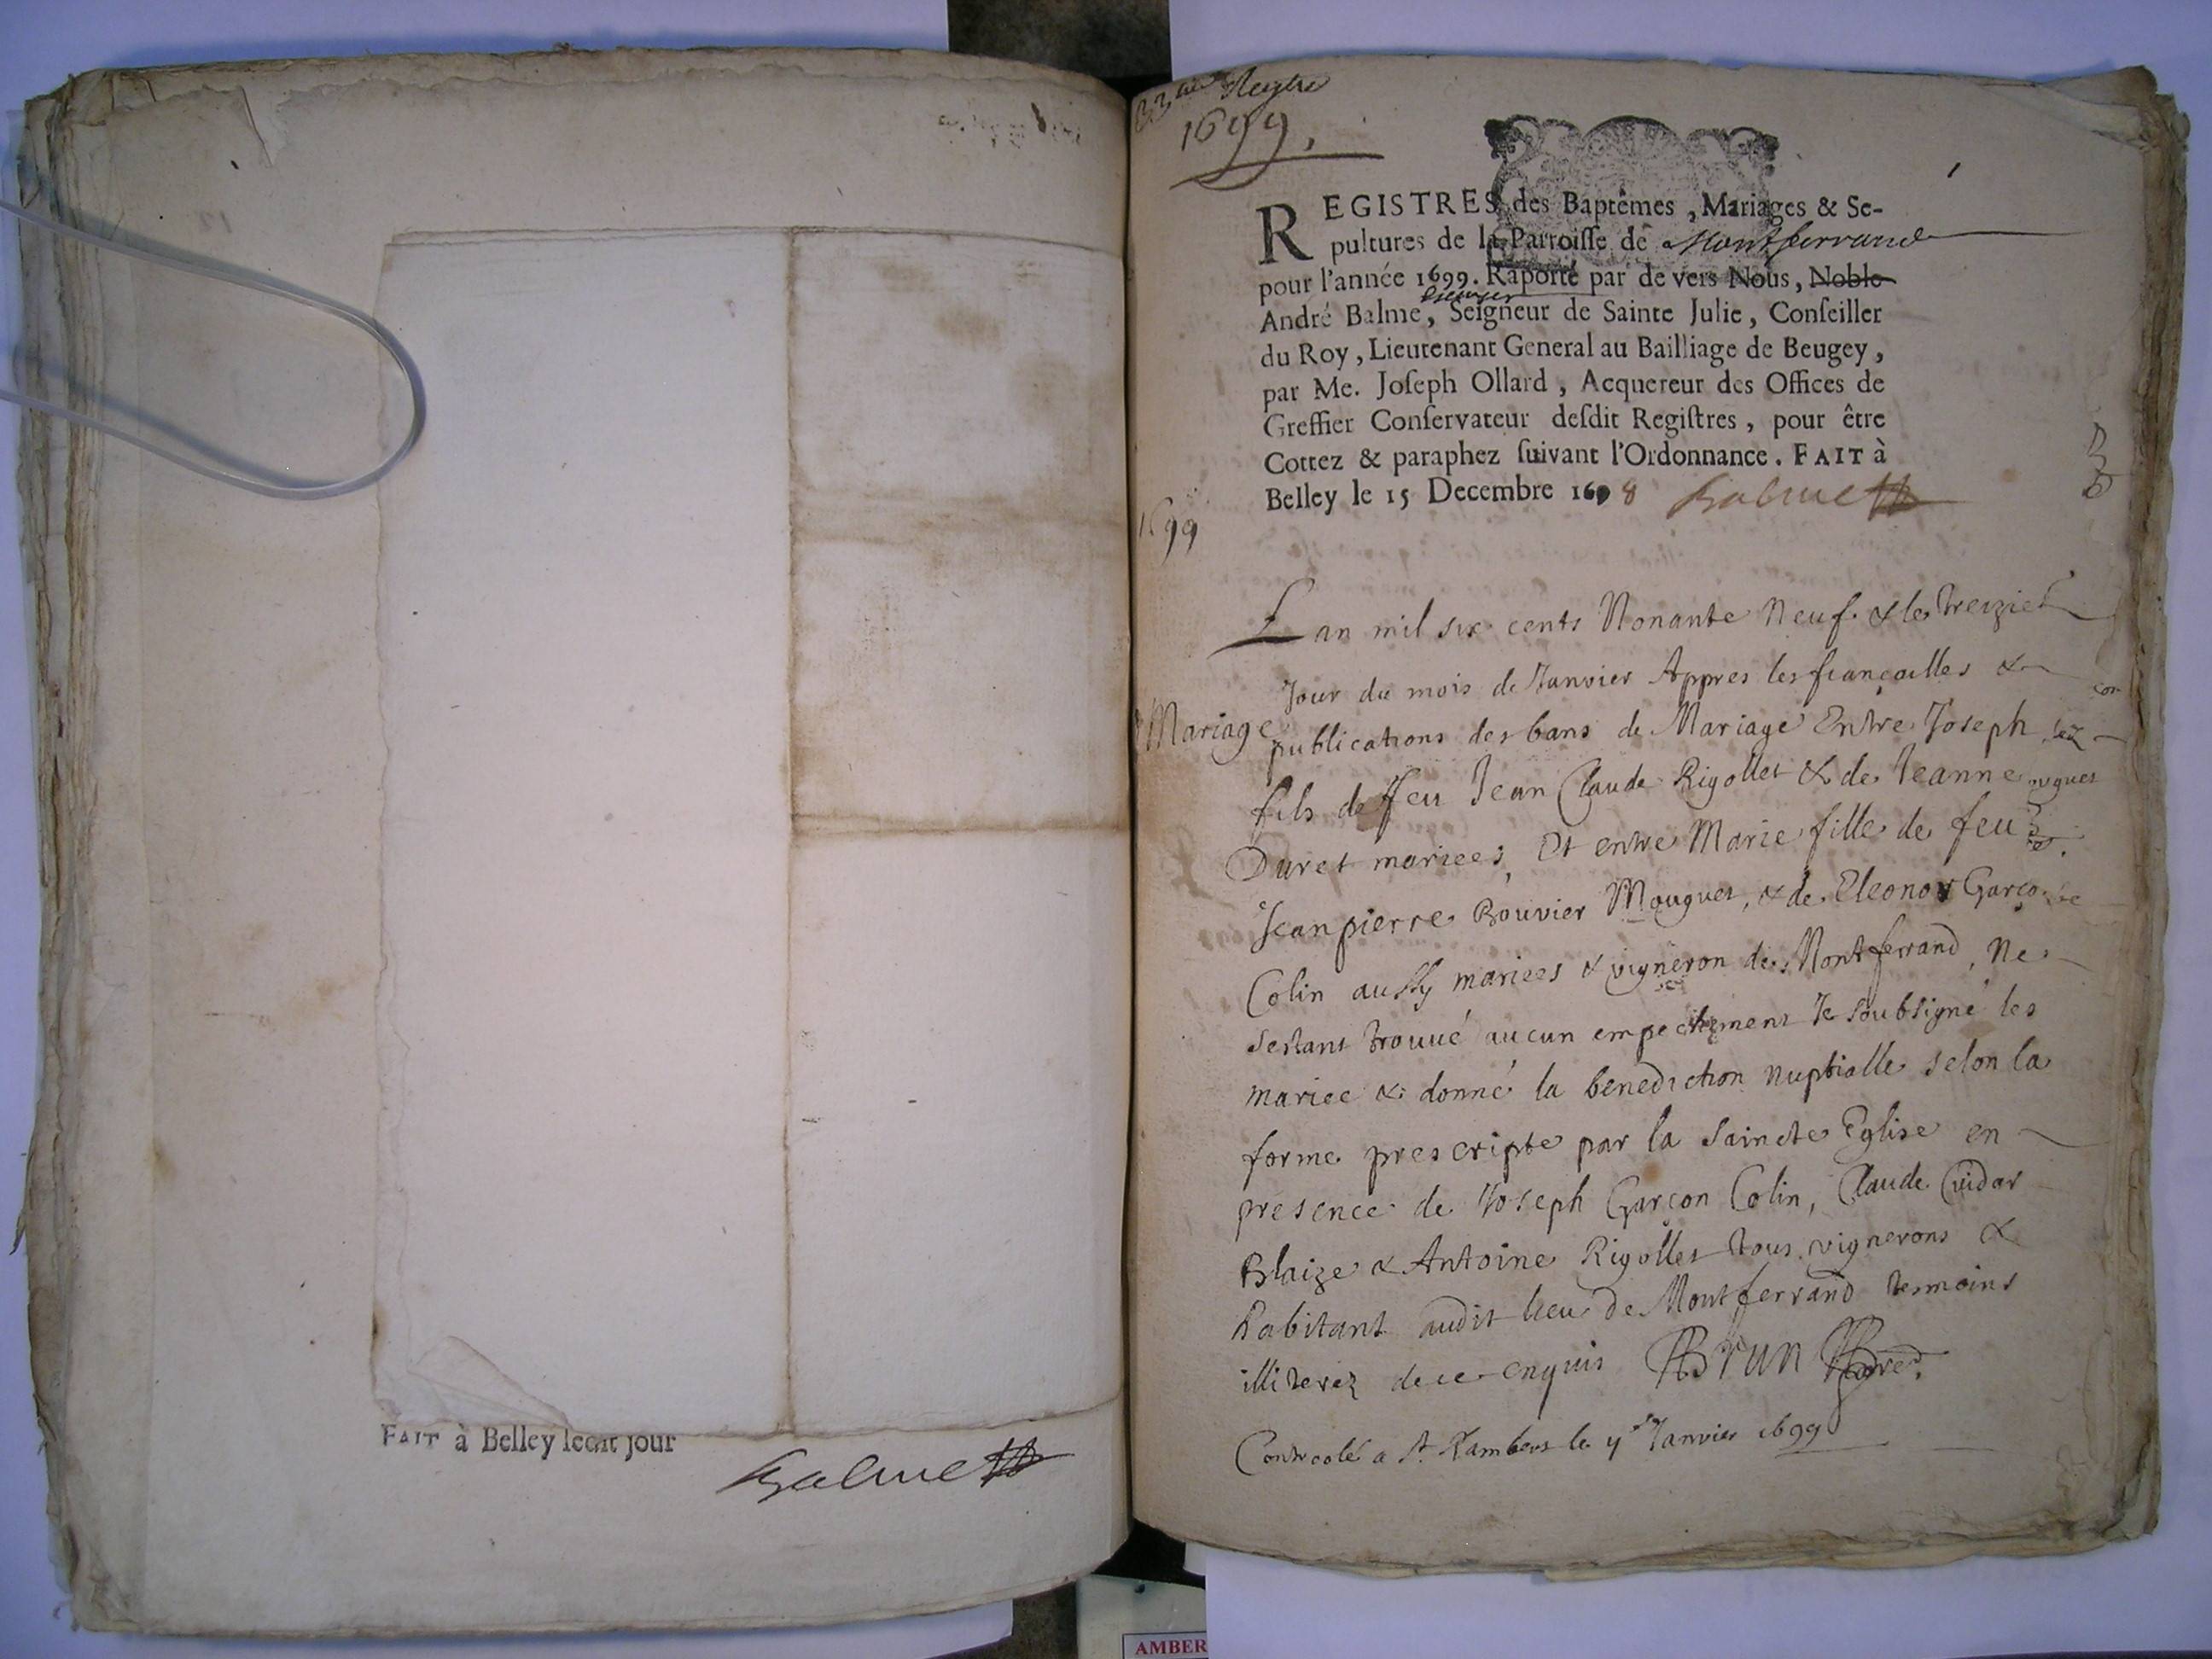 FAIT à Belley ledit jour
Balme
Regtre
1699.
REGISTRES des Baptêmes, Mariages & Se-
pultures de la Parroisse de Montferrand
pour l'année 1699. Raporté par de vers Nous, Noble
Escuyer
André Balme, Seigneur de Sainte Julie, Conseiller
du Roy, Lieutenant General au Bailliage de Beugey,
par Me. Joseph Ollard, Acquereur des Offices de
Greffier Conservateur desdit Registres, pour être
Cottez & paraphez suivant l'Ordonnance. FAIT à
Belley le 15 Decembre 1698 Balme
1699
Lan mil six cents Nonante Neuf & le treizie
Jour du mois de Janvier Appres les fiançailles &
Mariage
publications des bans de Mariage Entre Joseph
fils de feu Jean Claude Rigollet & de Jeanne
Duret mariees, Et entre Marie fille de feu
Jeanpierre Bouvier Mouguet, & de Eleonor Garço
Colin aussy mariees & vigneron de Montferrand, Ne
sestant trouué aucun empechement Je soubsigné les
mariee & donné la benediction nuptialle selon la
forme prescripte par la saincte Eglise en
presence de Joseph Garçon Colin, Claude Cuidar
Blaize & Antoine Rigollet tous vignerons &
habitant audit lieu de Montferrand tesmoins
illiterez de ce enquis Brun
Controolé a St. Rambert le Janvier 1699
AMBER